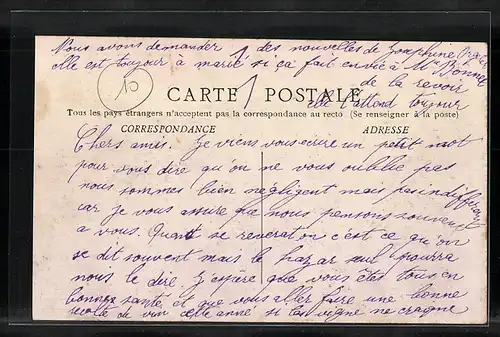 Nous avons demander des nouvelles de Josephine
elle est toujour à marié si ça fait envie à Mr Bonnet
de la revoir
elle l'attend toujour
10
CARTE POSTALE
Tous les pays étrangers n'acceptent pas la correspondance au recto (Se renseigner à la poste)
CORRESPONDANCE ADRESSE
Chers amis. Je viens vous ecrire un petit mot
pour vous dire qu'on ne vous oublie pas
nous sommes bien negligent mais pas indifferent
car je vous assure que nous pensons souvent
a vous. Quant se reverat on c'est ce qu'on
se dit souvent mais le hazar seul pourra
nous le dire J'espère que vous êtes tous en
bonnes santé et que vous aller faire une bonne
recolte du vin cette anné si la vigne ne craque